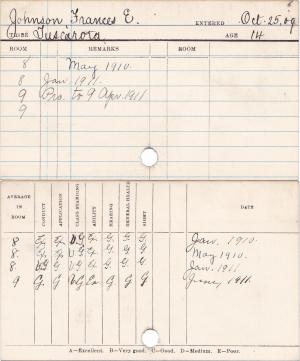 Johnson, Frances E. ENTERED Oct. 25, 09
TRIBE Tuscarora. AGE 14
ROOM REMARKS ROOM
8 May 1910.
8 Jan. 1911.
9 Pro. to 9 Apr. 1911
9
AVERAGE IN ROOM CONDUCT APPLICATION CLASS STANDING ABILITY HEARING GENERAL HEALTH SIGHT DATE
8 Ex. Ex. V.G Ex. G. G. G. Jan. 1910.
8. Ex. G. V.G Ex. G G G. May 1910.
8 V.G G V.G G G G G Jan. 1911
9 G. G. V.G Ex G. G G June, 1911.
A—Excellent. B—Very good. C—Good. D—Medium. E—Poor.